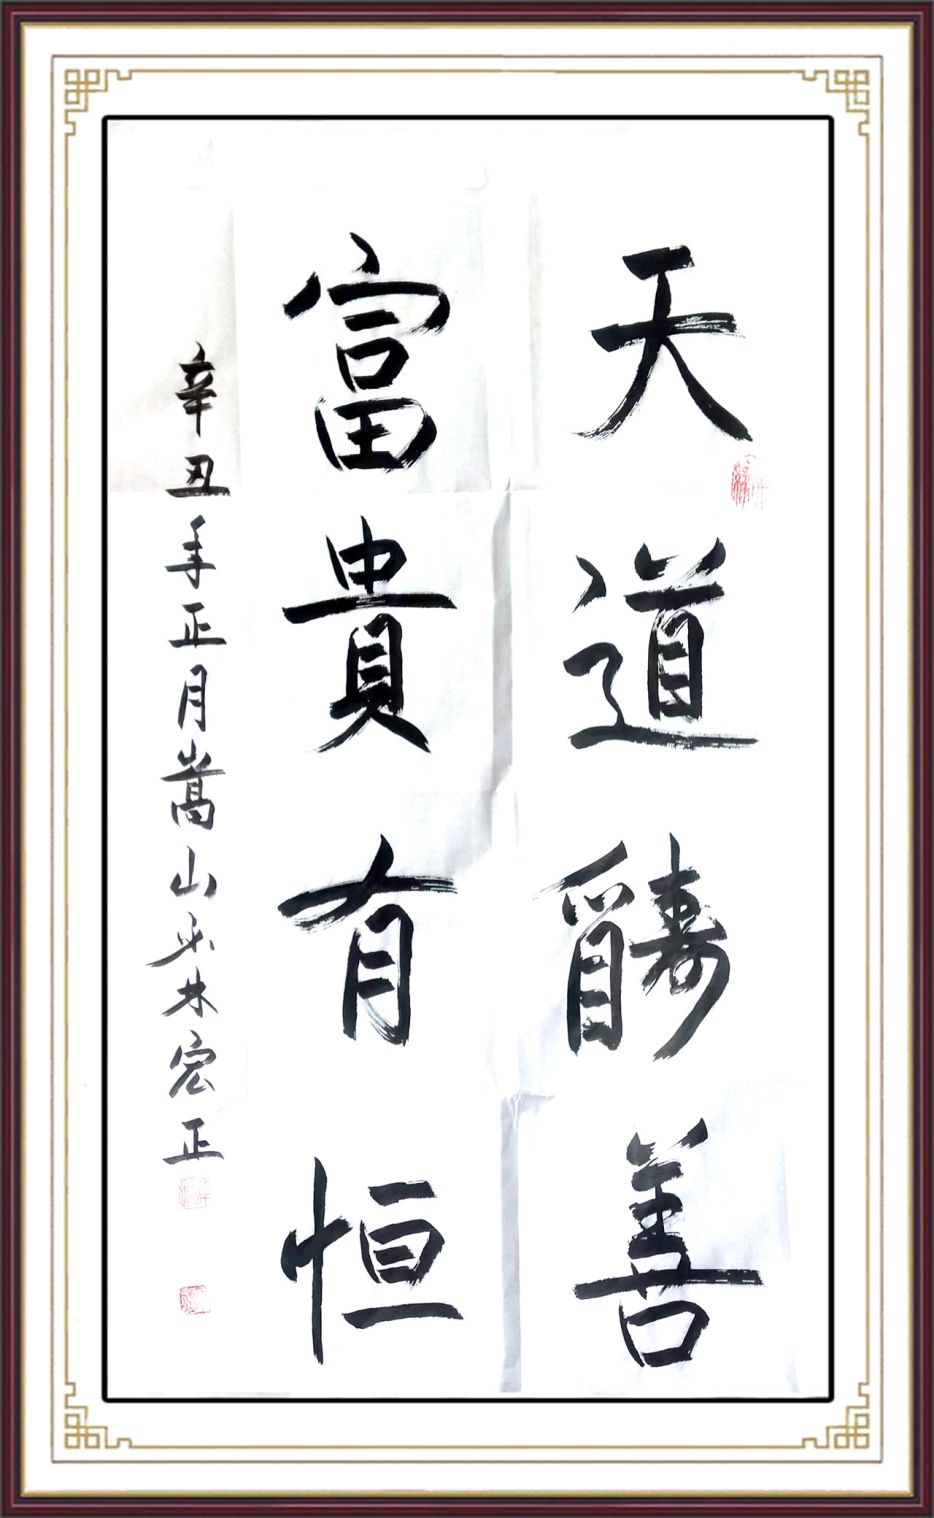 天道醻善
富貴有恒
辛丑年正月嵩山少林宏正